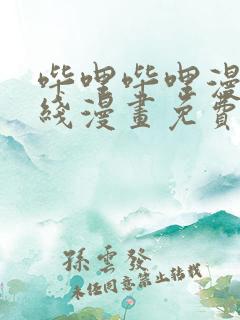 哔哩哔哩漫
线漫畫免費
孫雲發
未经同意禁止转载